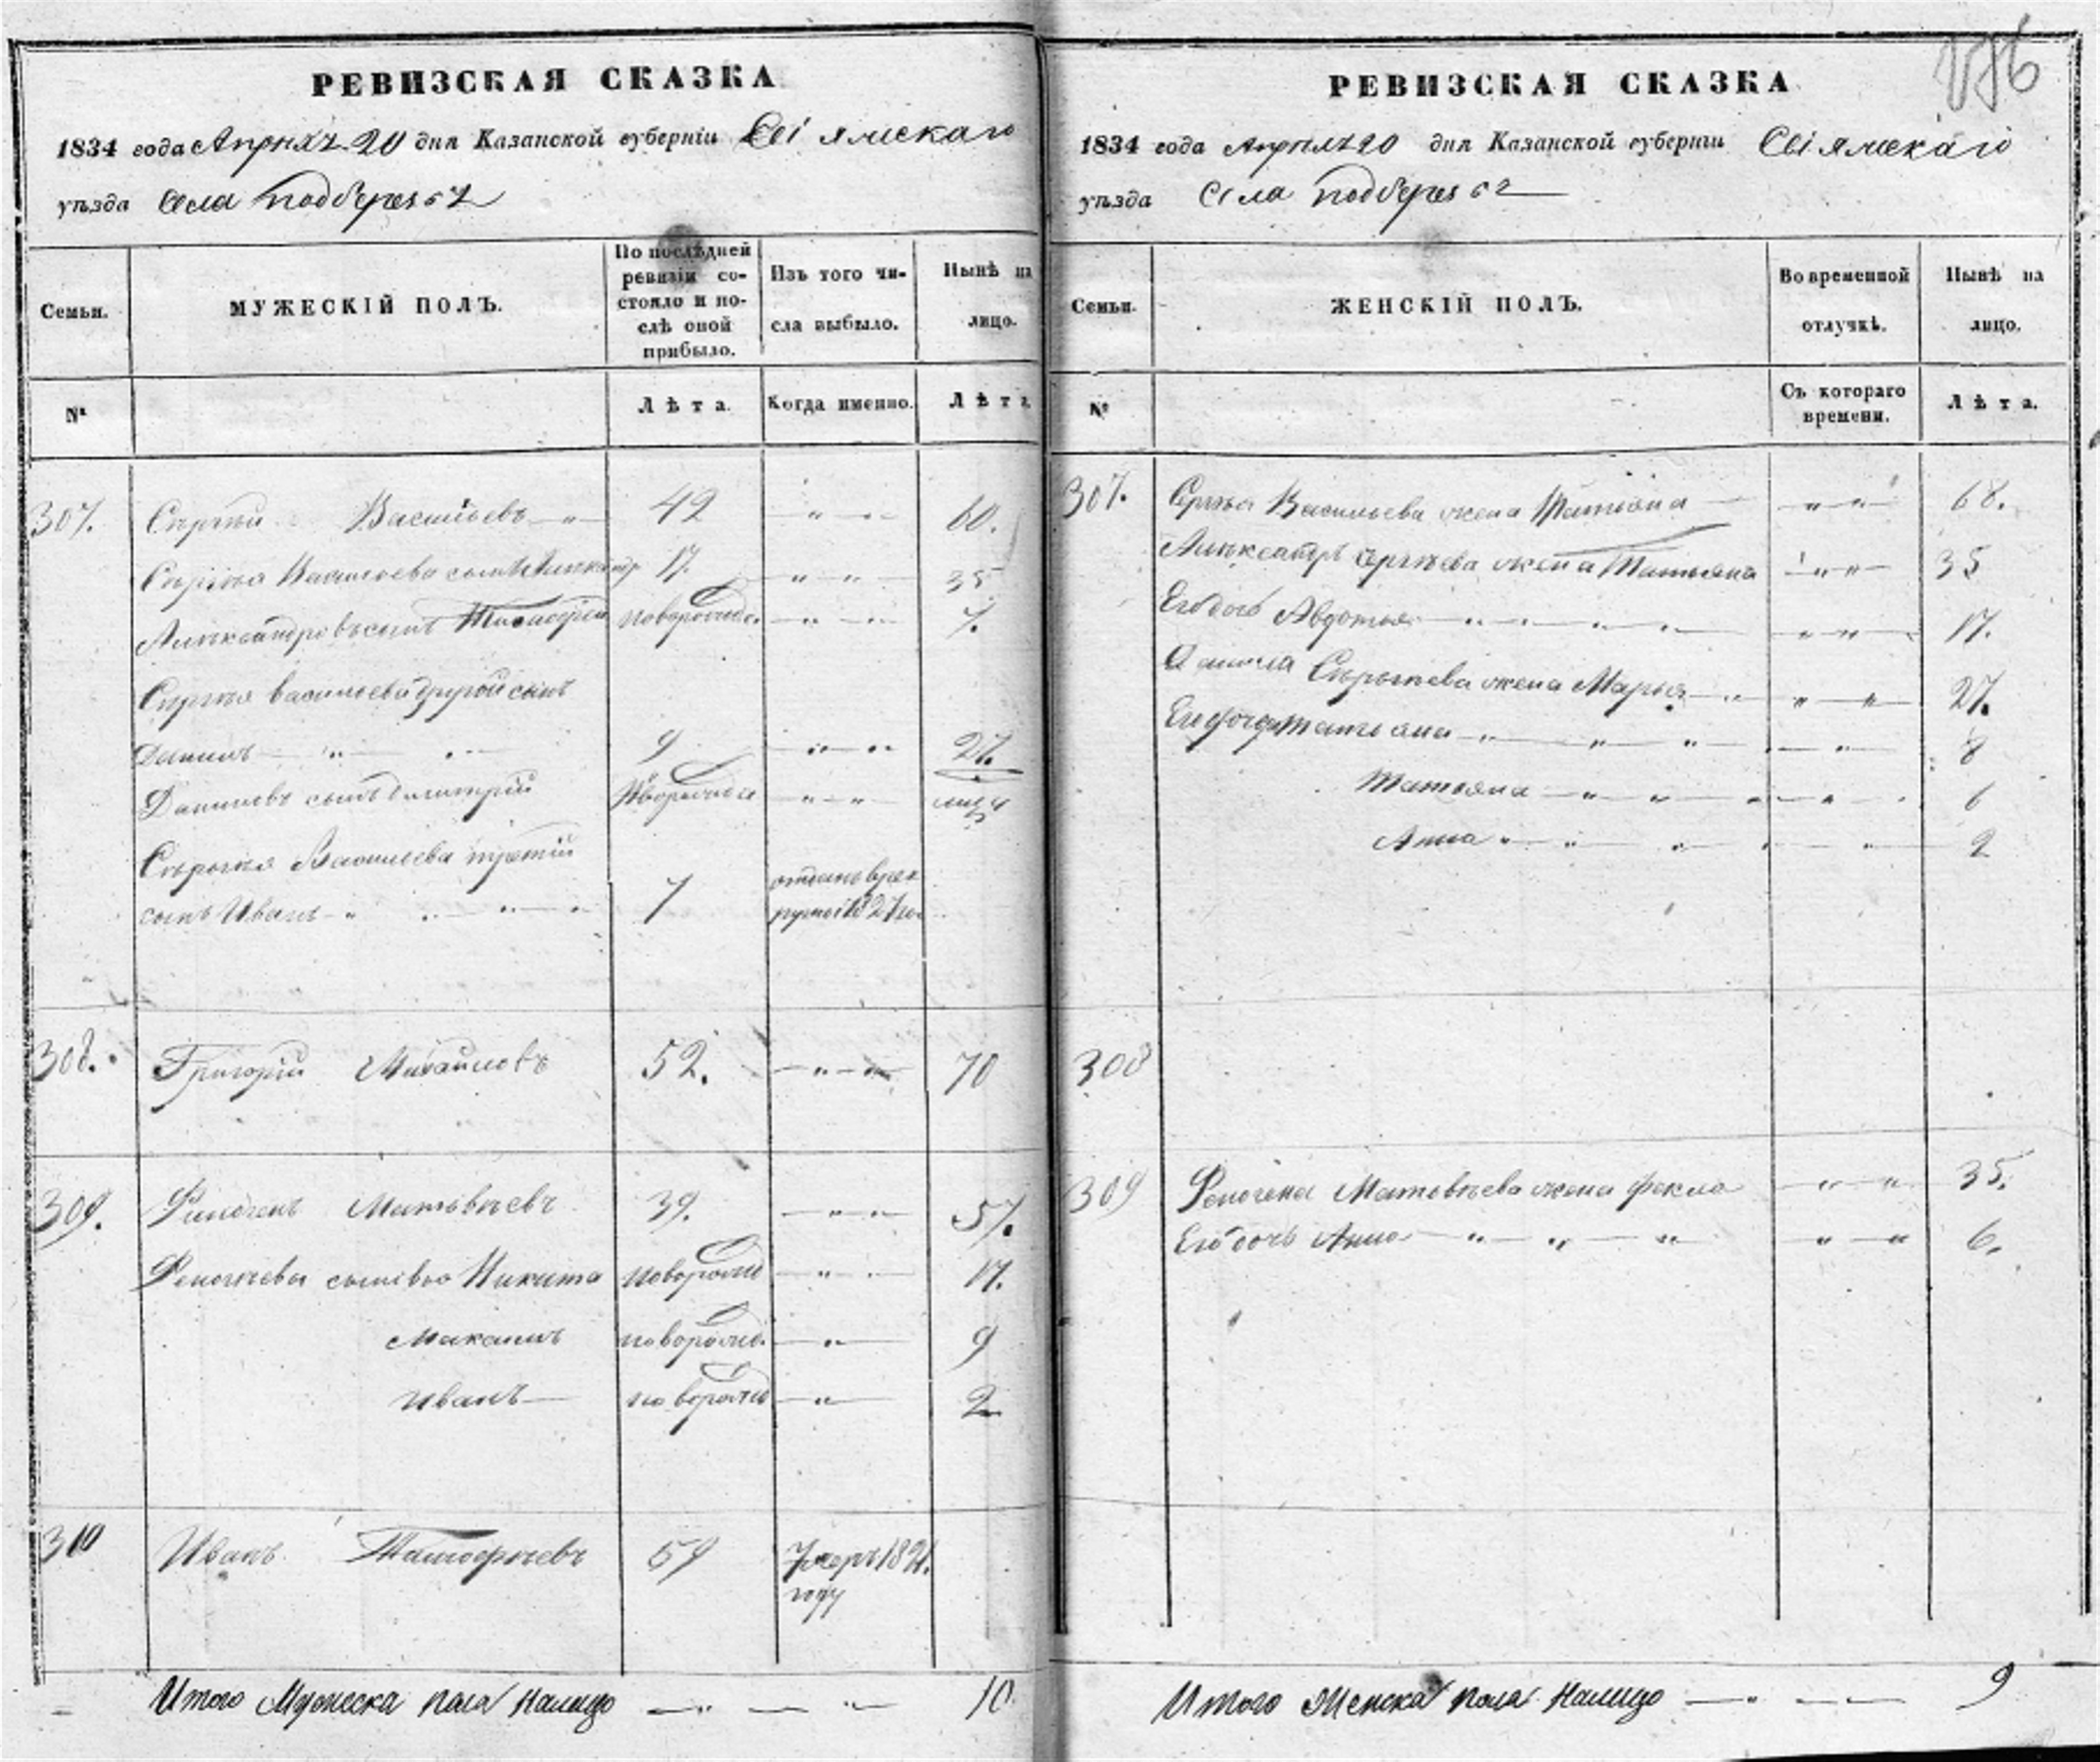 РЕВИЗСКАЯ СКАЗКА
1834 года Апреля 20 дня Казанской губернiи Свiяжскаго
уѣзда Села подберезья
Семьи.
МУЖЕСКIЙ ПОЛЪ.
По послѣдней ревизiи со-
стояло и по-
слѣ оной
прибыло.
Изъ того чи-
сла выбыло.
Нынѣ на
лицо.
№
Лѣта.
Когда именно.
Лѣта
307. Сергѣй Васильевъ 42 60.
Сергѣя Васильева сынъ Александр 17. 35
Александровъ сынъ Тимофей новорожде. 7.
Сергѣя васильева другой сынъ
Данилъ 9 27.
Даниловъ сынъ димитрiй новорожде
Сергѣя Васильева третiй
сынъ Иванъ 7 отданъ врек
руты 1827 го.
308. Григорiй Михайловъ 52. 70
309. Матвѣевъ 39. 57.
сыновья Никита новорожде 17.
новорожде. 9
Иванъ новорожде 2
310 Иванъ Тимофѣевъ 59 Умеръ 1821.
году
Итого Мужеска пола Налицо 10
РЕВИЗСКАЯ СКАЗКА
1834 года Апреля 20 дня Казанской губернiи Свiяжскаго
уѣзда Села подберезья
Семьи.
ЖЕНСКIЙ ПОЛЪ.
Во временной
отлучкѣ.
Нынѣ на
лицо.
№
Съ котораго
времени.
Лѣта.
307. Сергѣя Васильева жена Татьяна 68.
Александра Сергѣева жена Татьяна 35
Его дочь Авдотья 17.
Данила Сергѣева жена Марья 27.
Его дочери Татьяна 8
Татьяна 6
Анна 2
308
309 Матвѣева жена Фекла 35.
Его дочь Анна 6.
Итого Женска пола Налицо 9